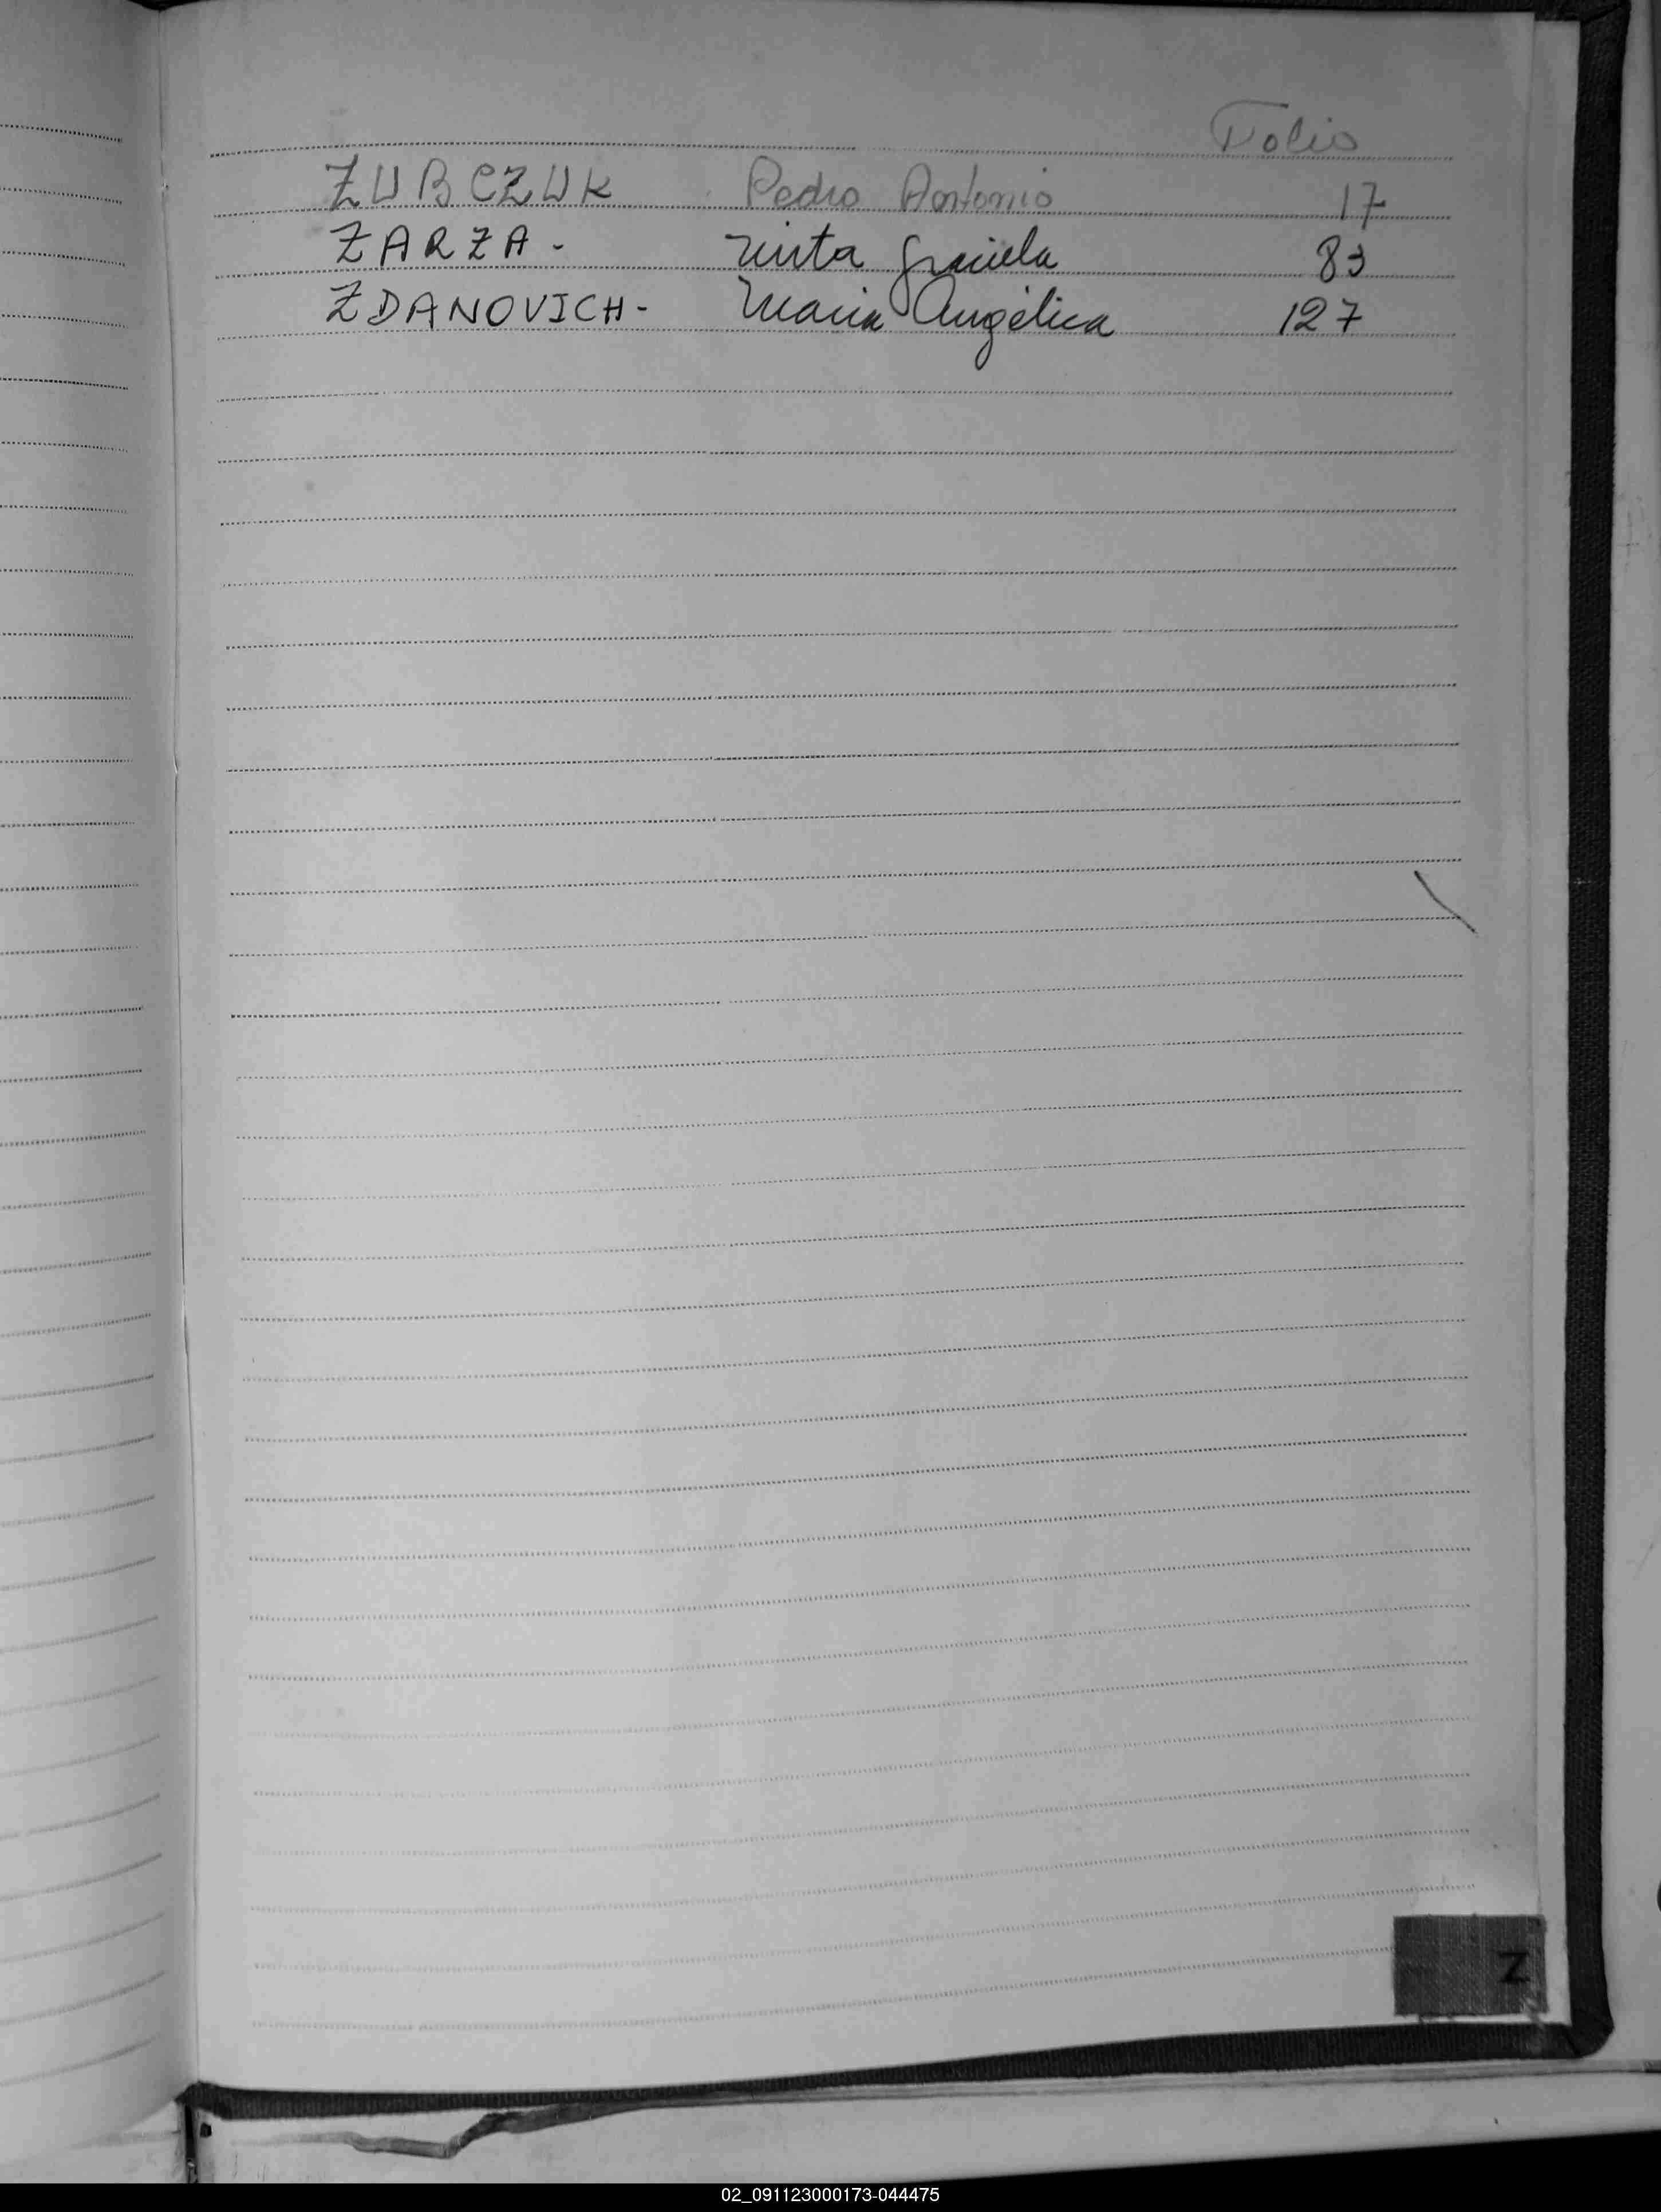 Folio
ZUBCZUK Pedro Antonio 17
ZARZA - Mirta Graciela 83
ZDANOVICH - Maria Angélica 127
Z
02_091123000173-044475